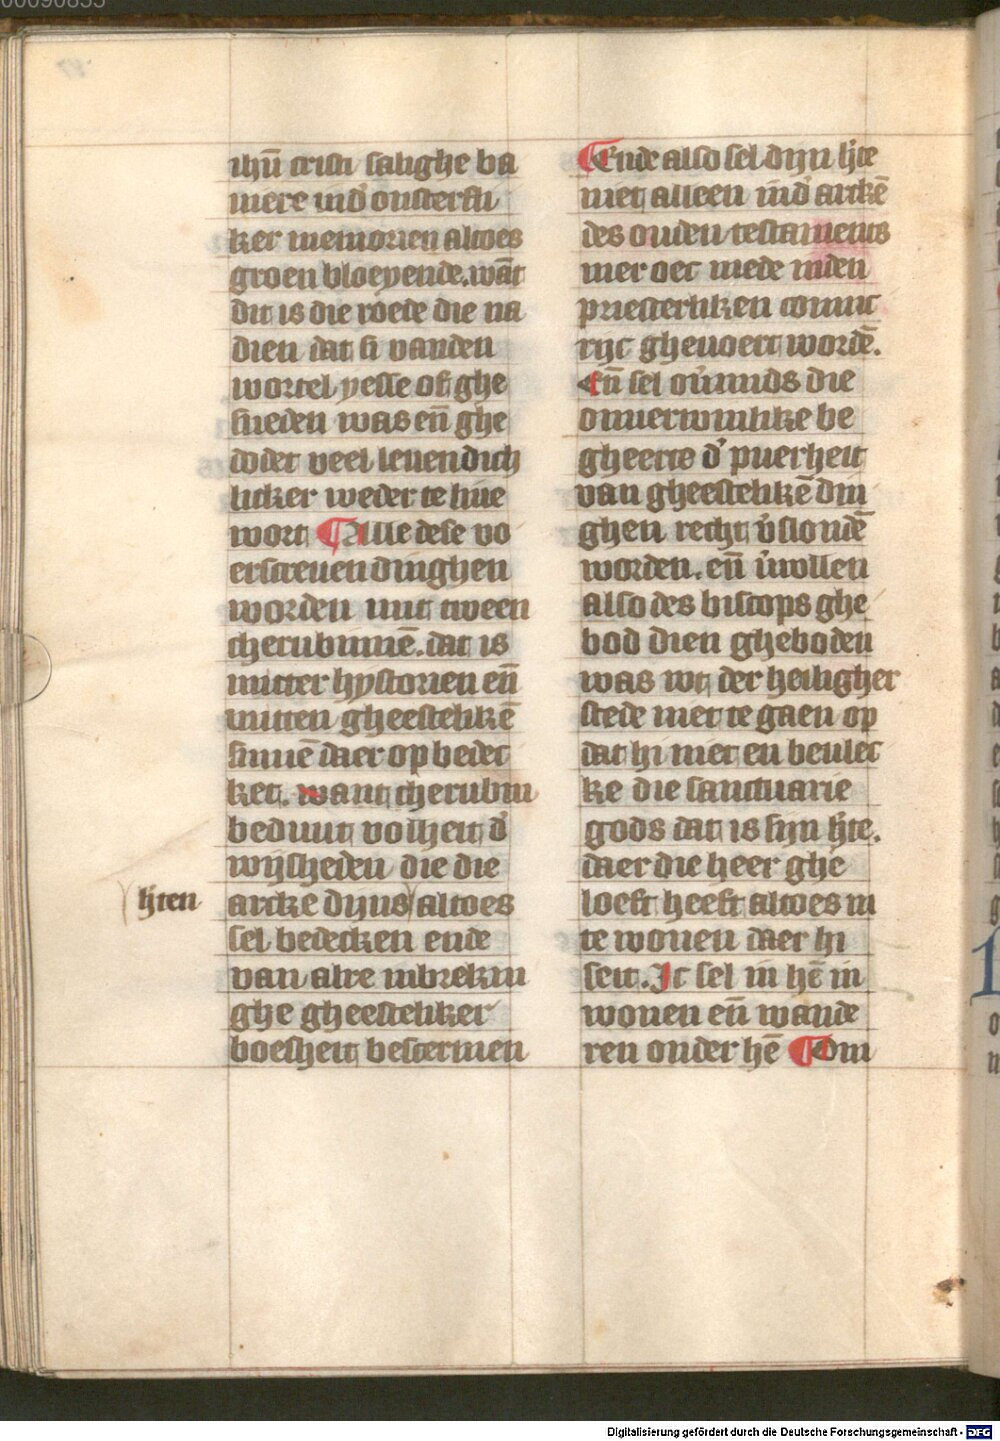 ihū cristi salighe ba
niere ind' onsterfli
ker memorien altoes
groen bloeyende. wāt
dit is die roede die na
dien dat si vanden
wortel yesse of ghe
sneden was eñ ghe
dodet veel leuendich
licker weder te liue
wort ¶ Alle dese vo
erscreuen dinghen
worden mit tween
cherubinnē. dat is
mitter hystorien eñ
mitten gheestelikē
sinnē daer op bedec
ket. want cherubin
beduut volheit d'
wijsheden die die
hten
arcke dijns altoes
sel bedecken ende
van alre inbrekin
ghe gheesteliker
boesheit bescermen
¶ Ende also sel dijn hte
niet alleen ind' arckē
des ouden testamets
mer oec mede inden
priesterliken coninc
rijc gheuoert wordē.
Eñ sel ou'mids die
onuerwinlike be
gheerte d' puerheit
van gheestelikē din
ghen recht v'slondē
worden. eñ v'wollen
also des biscops ghe
bod dien gheboden
was wt der heiligher
stede niet te gaen op
dat hi niet en beulec
ke die sanctuarie
gods dat is sijn hte.
daer die heer ghe
loeft heeft altoes in
te wonen daer hi
seit. Ic sel in hē in
wonen eñ wande
ren onder hē ¶ Om
Digitalisierung gefördert durch die Deutsche Forschungsgemeinschaft - DFG